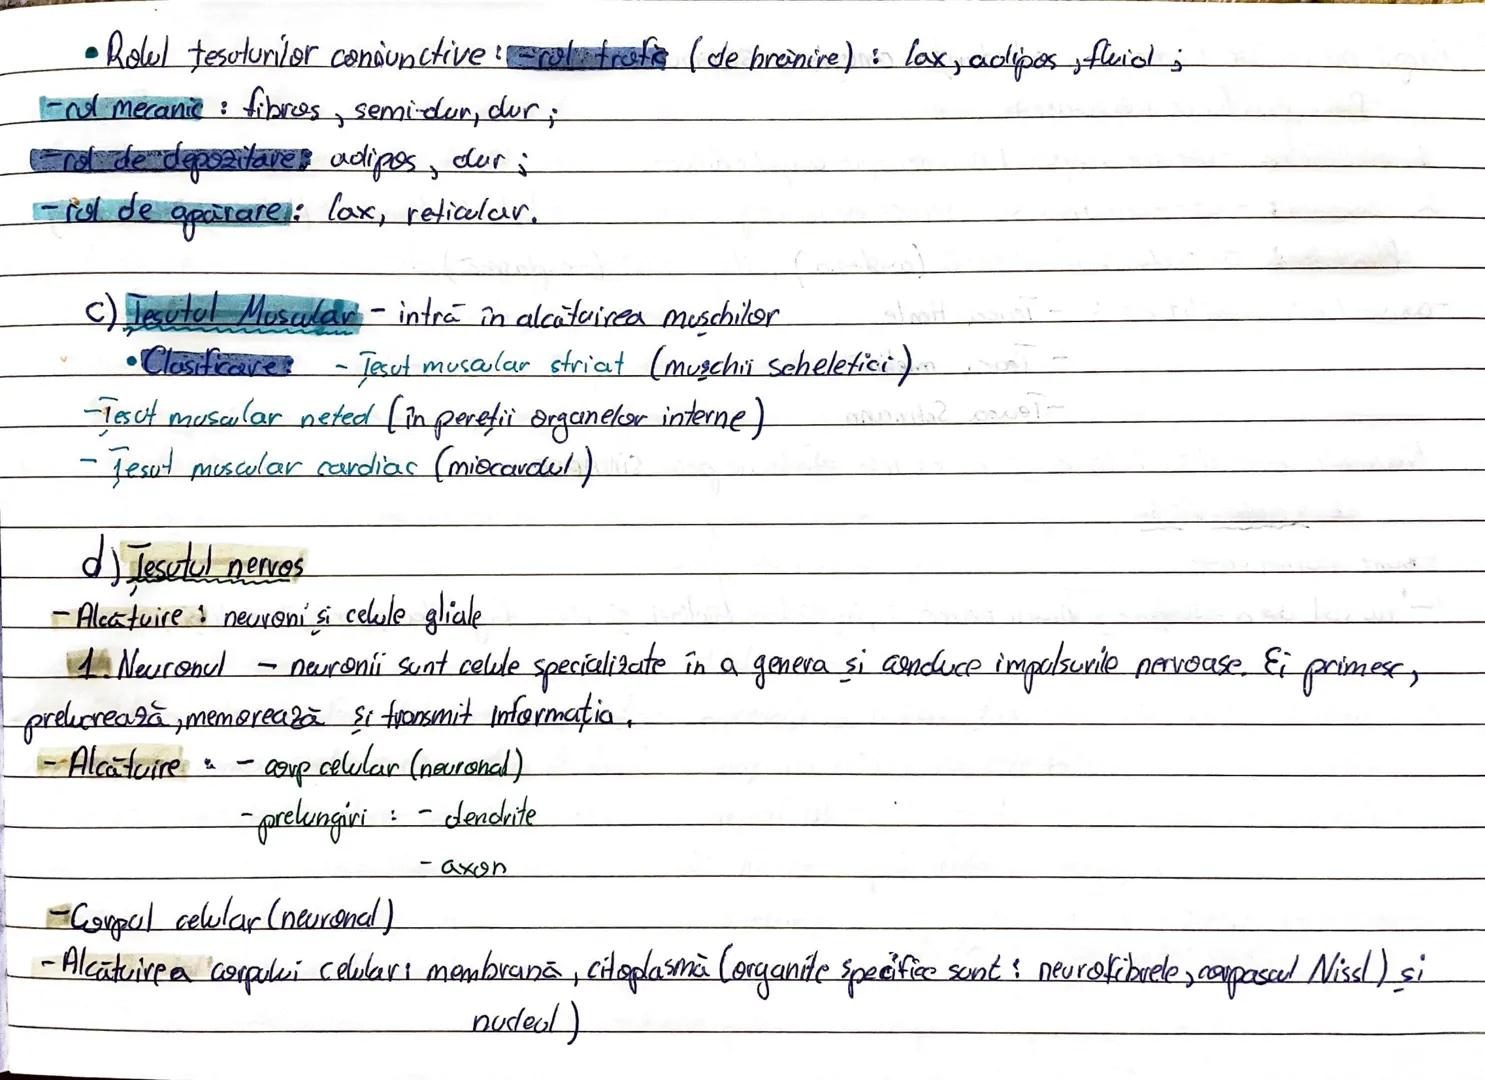 • Rolul țesuturilor conjunctive: - rol trofic (de hrănire): lax, adipos, fluid;
- rol mecanic: fibros, semi-dur, dur;
- rol de depozitare: adipos, dur;
- rol de apărare: lax, reticular.
c) Țesutul Muscular - intră în alcătuirea mușchilor
• Clasificare: - Țesut muscular striat (mușchii scheletici)
- Țesut muscular neted (în pereții organelor interne)
- Țesut muscular cardiac (miocardul)
d) Țesutul nervos
- Alcătuire: neuroni și celule gliale
1. Neuronul - neuronii sunt celule specializate în a genera și conduce impulsurile nervoase. Ei primesc,
prelucrează, memorează și transmit informația.
- Alcătuire: - corp celular (neuronal)
- prelungiri: - dendrite
- axon
- Corpul celular (neuronal)
- Alcătuirea corpului celular: membrană, citoplasmă (organite specifice sunt: neurofibrele, corpascul Nissl) și
nucleul)